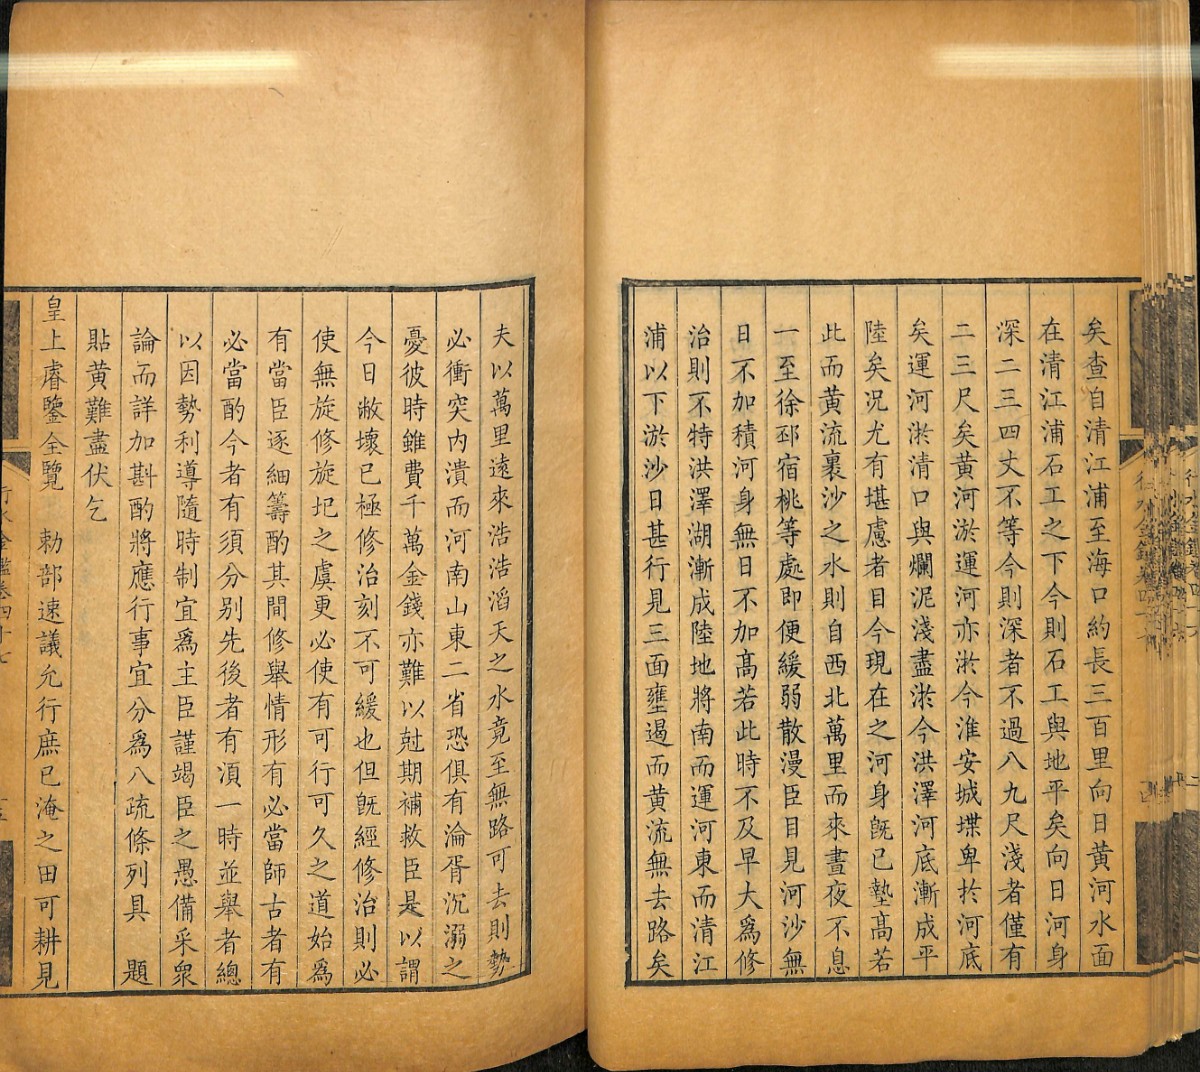 矣查自清江浦至海口約長三百里向日黃河水面
在清江浦石工之下今則石工與地平矣向日河身
深二三四丈不等今則深者不過八九尺淺者僅有
二三尺矣黃河淤運河亦淤今淮安城堞卑於河底
矣運河淤清口與爛泥淺盡淤今洪澤河底漸成平
陸矣况尤有堪慮者目今現在之河身旣已墊高若
此而黃流裹沙之水則自西北萬里而來晝夜不息
一至徐邳宿桃等處即便緩弱散漫臣目見河沙無
日不加積河身無日不加髙若此時不及早大爲修
治則不特洪澤湖漸成陸地將南而運河東而清江
浦以下淤沙日甚行見三面壅遏而黃流無去路矣
夫以萬里遠來浩浩滔天之水竟至無路可去則勢
必衝突内潰而河南山東二省恐俱有淪胥沉溺之
憂彼時雖費千萬金錢亦難以尅期補救臣是以謂
今日敝壞已極修治刻不可緩也但旣經修治則必
使無旋修旋圮之虞更必使有可行可久之道始爲
有當臣逐細籌酌其間修舉情形有必當師古者有
必當酌今者有須分别先後者有湏一時並舉者總
以因勢利導隨時制宜爲主臣謹竭臣之愚備采衆
論而詳加斟酌將應行事宜分爲八疏條列具　題
貼黃難盡伏乞
皇上睿鑒全覽　勅部速議允行庶已淹之田可耕見
行水金鑑卷四十七